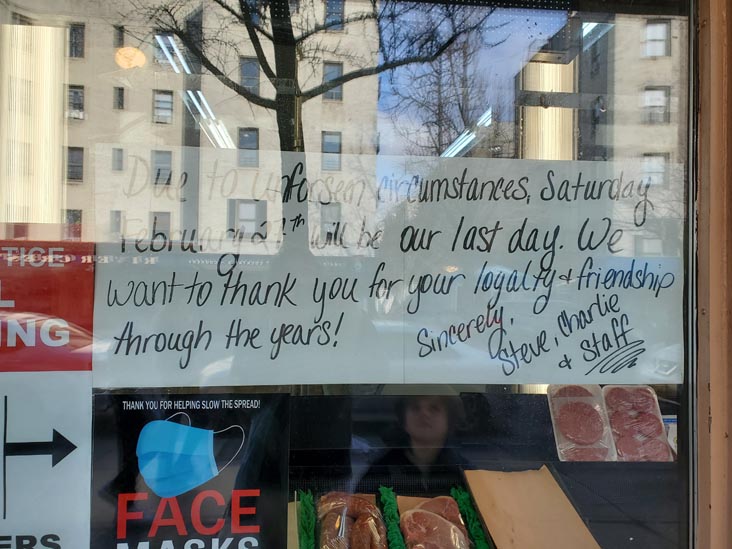 Due to unforseen circumstances, Saturday
February 27th will be our last day. We
want to thank you for your loyalty & friendship
through the years!
Sincerely,
Steve, Charlie
& Staff
TICE
L
NG
THANK YOU FOR HELPING SLOW THE SPREAD!
FACE
MASKS
ERS